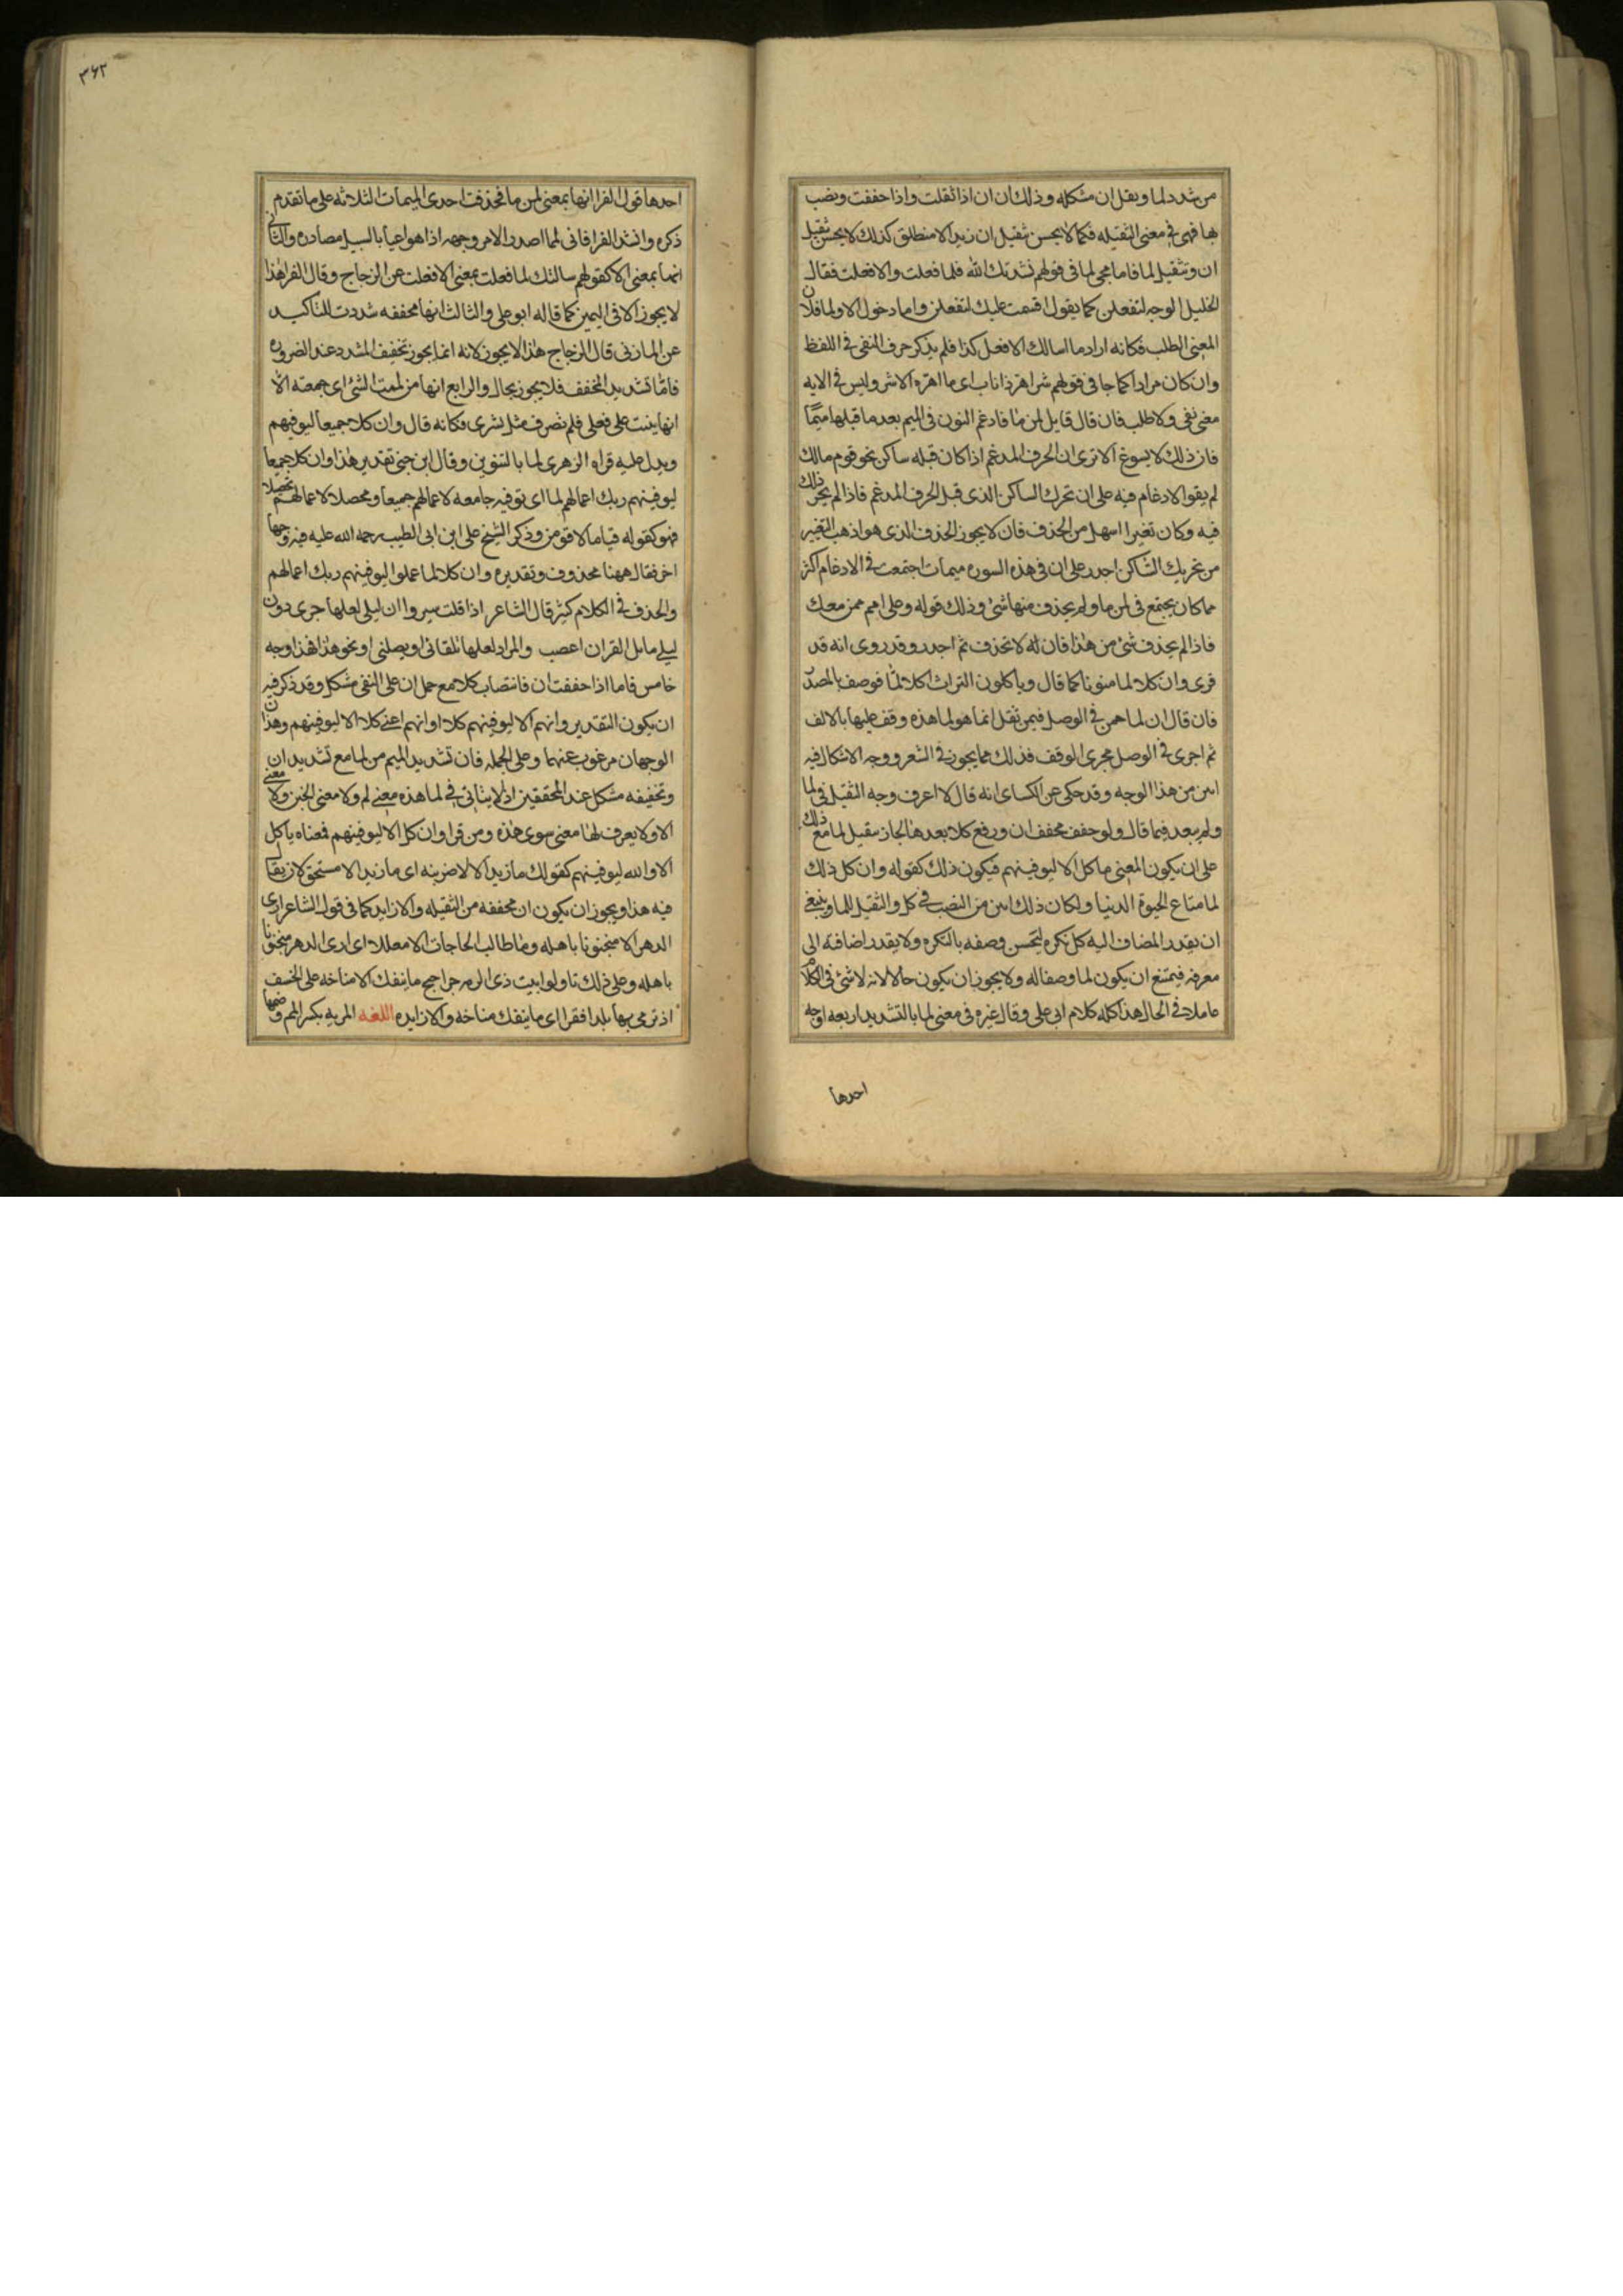 من شدد لما ويقل ان مشكله وذلك ان ان اذا ثقلت واذا خففت ونصب
بها فهى فى معنى الثقيله فكما لا يحسن تثقيل ان زيدا الا منطلق كذلك لا يحسن تثقيل
ان وتثقيل لما فاما مجى لما فى قولهم نشدتك الله فلما فعلت والا فعلت فقال
الخليل الوجه لتفعلن كما يقول اقسمت عليك لتفعلن واما دخول الا ولما فلان
المعنى الطلب فكانه اراد ما اسالك الا فعل كذا فلم يذكر حرف النفى فى اللفظ
وان كان مرادا كما جا فى قولهم شر اهر ذا ناب اى ما اهره الا شر وليس فى الايه
معنى نفى ولا طلب فان قال قايل لمن ما فادغم النون فى الميم بعد ما قبلها ميما
فان ذلك لا يسوغ الا ترى ان الحرف المدغم اذا كان قبله ساكن نحو قوم مالك
لم يقو الادغام فيه على ان تحرك الساكن الذى قبل الحرف المدغم فاذا لم يجز ذلك
فيه وكان تغيرا اسهل من الحذف فان لا يجوز الحذف الذى هو اذهب التغير
من تحريك الساكن اجدر على ان فى هذه السوره ميمات اجتمعت فى الادغام اكثر
مما كان يجتمع فى لمن ما ولم يحذف منها شئ وذلك قوله وعلى امم ممن معك
فاذا لم يحذف شئ من هذا فان له لا تحذف ثم اجدر وقد روى انه قد
قرى وان كلا لما منونا كما قال وياكلون التراث اكلا لما فوصف بالمصدر
فان قال ان لما همن فى الوصل فيمن ثقل انما هو لما هذه وقف عليها بالالف
ثم اجرى فى الوصل مجرى الوقف فذلك مما يجوز فى الشعر ووجه الاشكال فيه
ابين من هذا الوجه وقد حكى عن الكساى انه قال لا اعرف وجه الثقيل فى لما
ولم يبعد فيما قال ولو خفف مخفف ان ورفع كلا بعدها لجاز تثقيل لما مع ذلك
على ان يكون المعنى ما كل الا ليوفينهم فيكون ذلك كقوله وان كل ذلك
لما متاع الحيوة الدنيا ولكان ذلك ابين من النصب فى كل والثقيل للما وينبغى
ان يقدر المضاف اليه كل نكره ليحسن وصفه بالنكره ولا يقدر اضافته الى
معرفه فيمتنع ان يكون لما وصفا له ولا يجوز ان يكون حالا لانه لا شئ فى الكلام
عاملا فى الحال هذا كله كلام ابى على وقال غيره فى معنى لما بالتشديد اربعه اوجه
احدها
٣٦٢
احدها قول الفرا انها بمعنى لمن ما فحذفت احدى الميمات الثلاثه على ما تقدم
ذكره وانشد الفرا فانى لما اصدر الامر وجهه اذا هو اعيا بالسبيل مصادره والثانى
انها بمعنى الا كقولهم سالتك لما فعلت بمعنى الا فعلت عن الزجاج وقال الفرا هذا
لا يجوز الا فى اليمين كما قاله ابو على والثالث انها مخففه شددت للتاكيد
عن المازنى قال الزجاج هذا لا يجوز لانه انما يجوز تخفيف المشدد عند الضروره
فاما تشديد المخفف فلا يجوز بحال والرابع انها من لممت الشئ اى جمعته الا
انها بنيت على فعلى فلم تصرف مثل بشرى فكانه قال وان كلا جميعا ليوفيهم
ويدل عليه قراه الزهرى لما بالتنوين وقال ابن جنى تقدير هذا وان كلا جميعا
ليوفينهم ربك اعمالهم لما اى توفيه جامعه لاعمالهم جميعا ومحصلا لاعمالهم تحصيلا
فهو كقوله قياما لاقومن وذكر الشيخ على ابن ابى الطيب رحمه الله عليه فيه وجها
اخر فقال ههنا محذوف وتقديره وان كلا لما عملوا ليوفينهم ربك اعمالهم
والحذف فى الكلام كثير قال الشاعر اذا قلت سيروا ان ليلى لعلها جرى دون
ليلى مايل القران اعصب والمراد لعلها تلقانى او يصلنى او نحو هذا فهذا وجه
خامس فاما اذا خففت ان فانتصاب كلا مع حمل ان على النفى مشكل وقد ذكر فيه
ان يكون التقدير وانهم الا ليوفينهم كلا او انهم اعنى كلا الا ليوفينهم وهذان
الوجهان مرغوب عنهما وعلى الجمله فان تشديد الميم من لما مع تشديد ان
وتخفيفه مشكل عند المحققين اذ لا يتاتى فى لما هذه معنى لم ولا معنى الحين ولا معنى
الا ولا يعرف لها معنى سوى هذه ومن قرا وان كل الا ليوفينهم فمعناه ما كل
الا والله ليوفينهم كقولك ما زيد الا لاضربنه اى ما زيد الا مستحق لان يقال
فيه هذا ويجوز ان يكون ان مخففه من الثقيله والا زايد كما فى قول الشاعر ارى
الدهر الا منجنونا باهله وما طالب الحاجات الا معللا اى ارى الدهر منجنونا
باهله وعلى ذلك تاولوا بيت ذى الرمه حراجيج ما ينفك الا مناخه على الخسف
او نرمى بها بلدا قفرا اى ما ينفك مناخه والا زايده اللغه المريه بكسر الميم وضمها